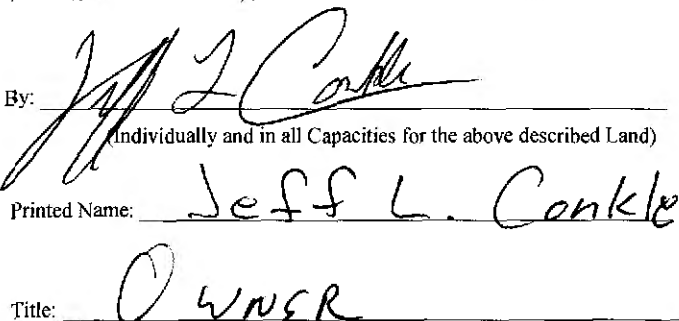 By: Jeff L Conkle
(Individually and in all Capacities for the above described Land)
Printed Name: Jeff L. Conkle
Title: OWNER